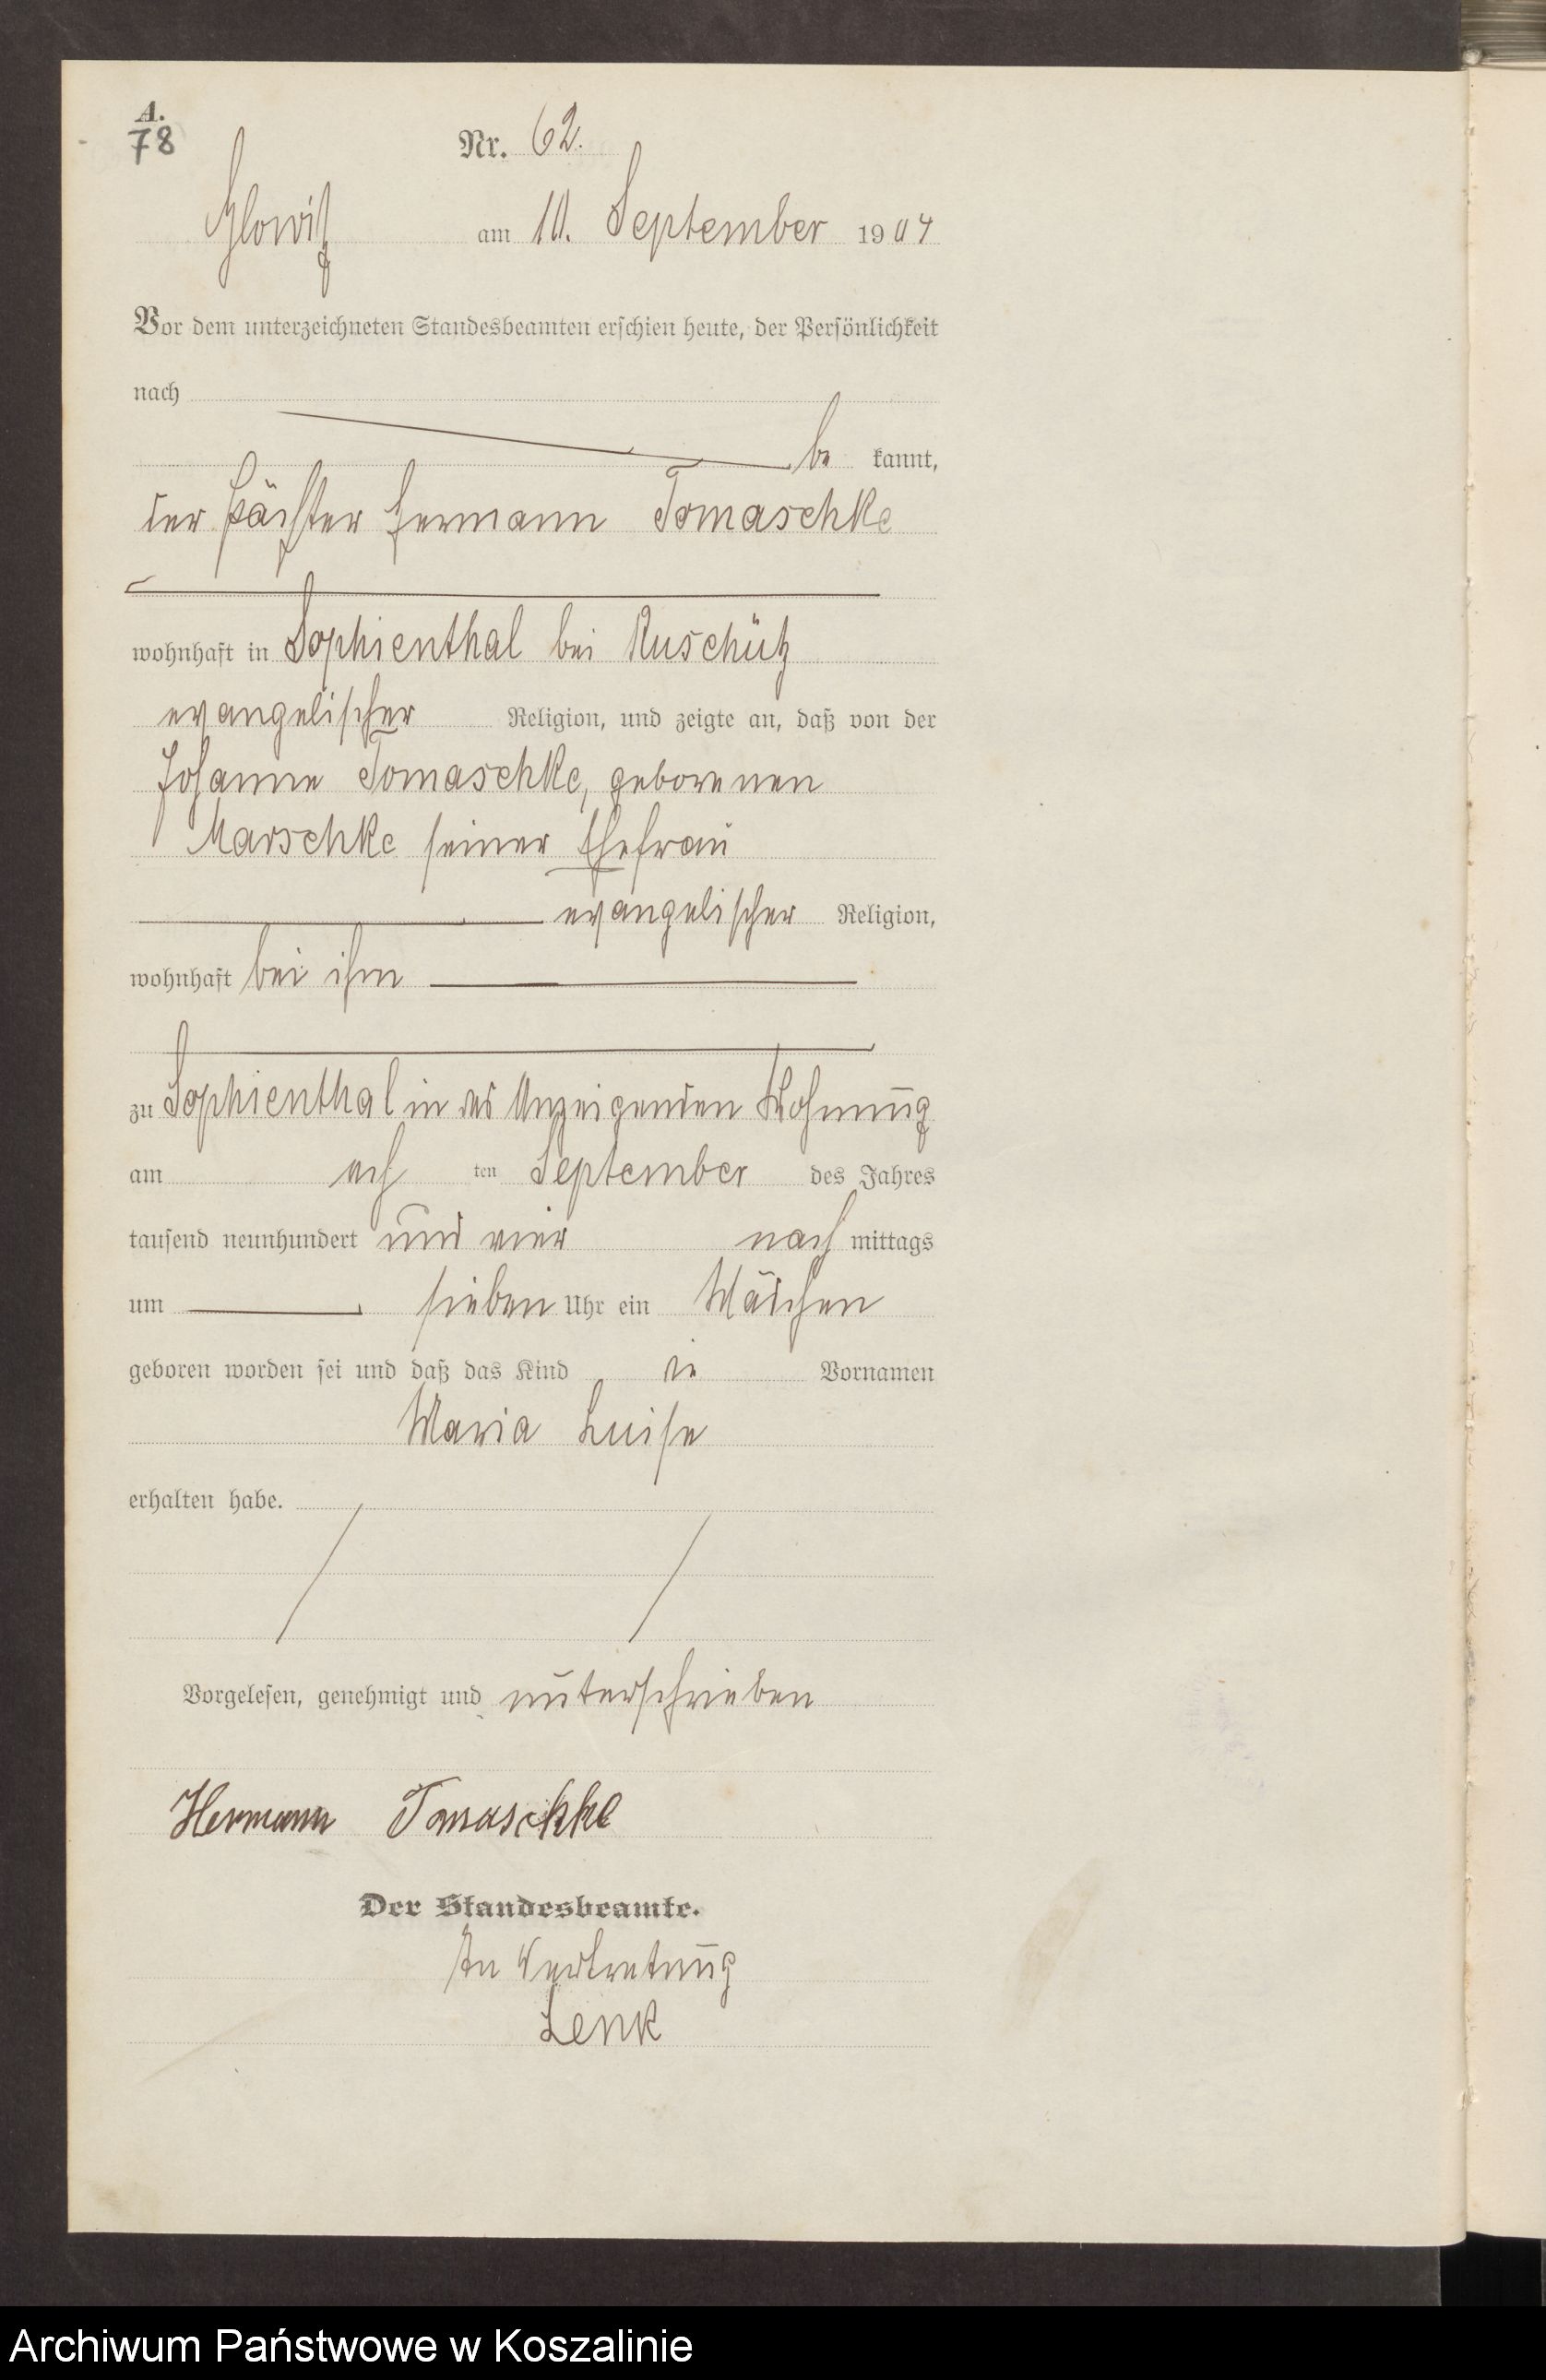 A.
78
Nr. 62.
Glowitz am 10. September 1904
Vor dem unterzeichneten Standesbeamten erschien heute, der Persönlichkeit
nach
be kannt,
der Pächter Hermann Tomaschke
wohnhaft in Sophienthal bei Ruschütz
evangelischer Religion, und zeigte an, daß von der
Johanne Tomaschke, geborenen
Marschke seiner Ehefrau
evangelischer Religion,
wohnhaft bei ihm
zu Sophienthal in des Anzeigenden Wohnung
am ach ten September des Jahres
tausend neunhundert und vier nach mittags
um sieben Uhr ein Mädchen
geboren worden sei und daß das Kind die Vornamen
Maria Luise
erhalten habe.
Vorgelesen, genehmigt und unterschrieben
Hermann Tomaschke
Der Standesbeamte.
In Vertretung
Lenk
Archiwum Państwowe w Koszalinie